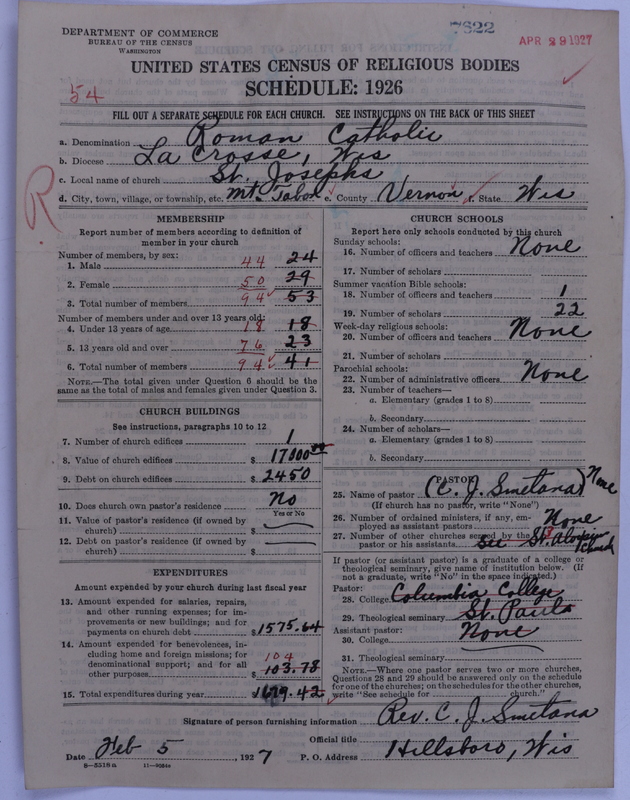 7822
DEPARTMENT OF COMMERCE
BUREAU OF THE CENSUS
WASHINGTON
APR 29 1927
UNITED STATES CENSUS OF RELIGIOUS BODIES
SCHEDULE: 1926
54
FILL OUT A SEPARATE SCHEDULE FOR EACH CHURCH. SEE INSTRUCTIONS ON THE BACK OF THIS SHEET
a. Denomination Roman Catholic
b. Diocese La Crosse, Wis
c. Local name of church St. Josephs
d. City, town, village, or township, etc. Mt. Tabor e. County Vernon f. State Wis
R
MEMBERSHIP
Report number of members according to definition of member in your church
Number of members, by sex:
1. Male 44 24
2. Female 50 29
3. Total number of members 94 53
Number of members under and over 13 years old:
4. Under 13 years of age 18 18
5. 13 years old and over 76 23
6. Total number of members 94 41
NOTE.—The total given under Question 6 should be the
same as the total of males and females given under Question 3.
CHURCH BUILDINGS
See instructions, paragraphs 10 to 12
7. Number of church edifices 1
8. Value of church edifices $ 17000
9. Debt on church edifices $ 2450
10. Does church own pastor's residence? No
Yes or No
11. Value of pastor's residence (if owned by
church) $
12. Debt on pastor's residence (if owned by
church) $
EXPENDITURES
Amount expended by your church during last fiscal year
13. Amount expended for salaries, repairs,
and other running expenses; for im-
provements or new buildings; and for
payments on church debt $ 1575.64
14. Amount expended for benevolences, in-
cluding home and foreign missions; for
denominational support; and for all
other purposes $ 104 103.78
15. Total expenditures during year $ 1679.42
CHURCH SCHOOLS
Report here only schools conducted by this church
Sunday schools:
16. Number of officers and teachers None
17. Number of scholars
Summer vacation Bible schools:
18. Number of officers and teachers 1
19. Number of scholars 22
Week-day religious schools:
20. Number of officers and teachers None
21. Number of scholars
Parochial schools:
22. Number of administrative officers None
23. Number of teachers—
a. Elementary (grades 1 to 8)
b. Secondary
24. Number of scholars—
a. Elementary (grades 1 to 8)
b. Secondary
PASTOR
25. Name of pastor (C. J. Smetana) None
(If church has no pastor, write "None")
26. Number of ordained ministers, if any, em-
ployed as assistant pastors None
27. Number of other churches served by the
pastor or his assistants See St. Aloysius Church
If pastor (or assistant pastor) is a graduate of a college or
theological seminary, give name of institution below. (If
not a graduate, write "No" in the space indicated.)
Pastor:
28. College Columbia College
29. Theological seminary St. Pauls
Assistant pastor:
30. College None
31. Theological seminary
NOTE.—Where one pastor serves two or more churches,
Questions 28 and 29 should be answered only on the schedule
for one of the churches; on the schedules for the other churches,
write "See schedule for church."
Signature of person furnishing information Rev. C. J. Smetana
Official title
Date Feb 5, 1927 P. O. Address Hillsboro, Wis
8-5518a 11-9054a